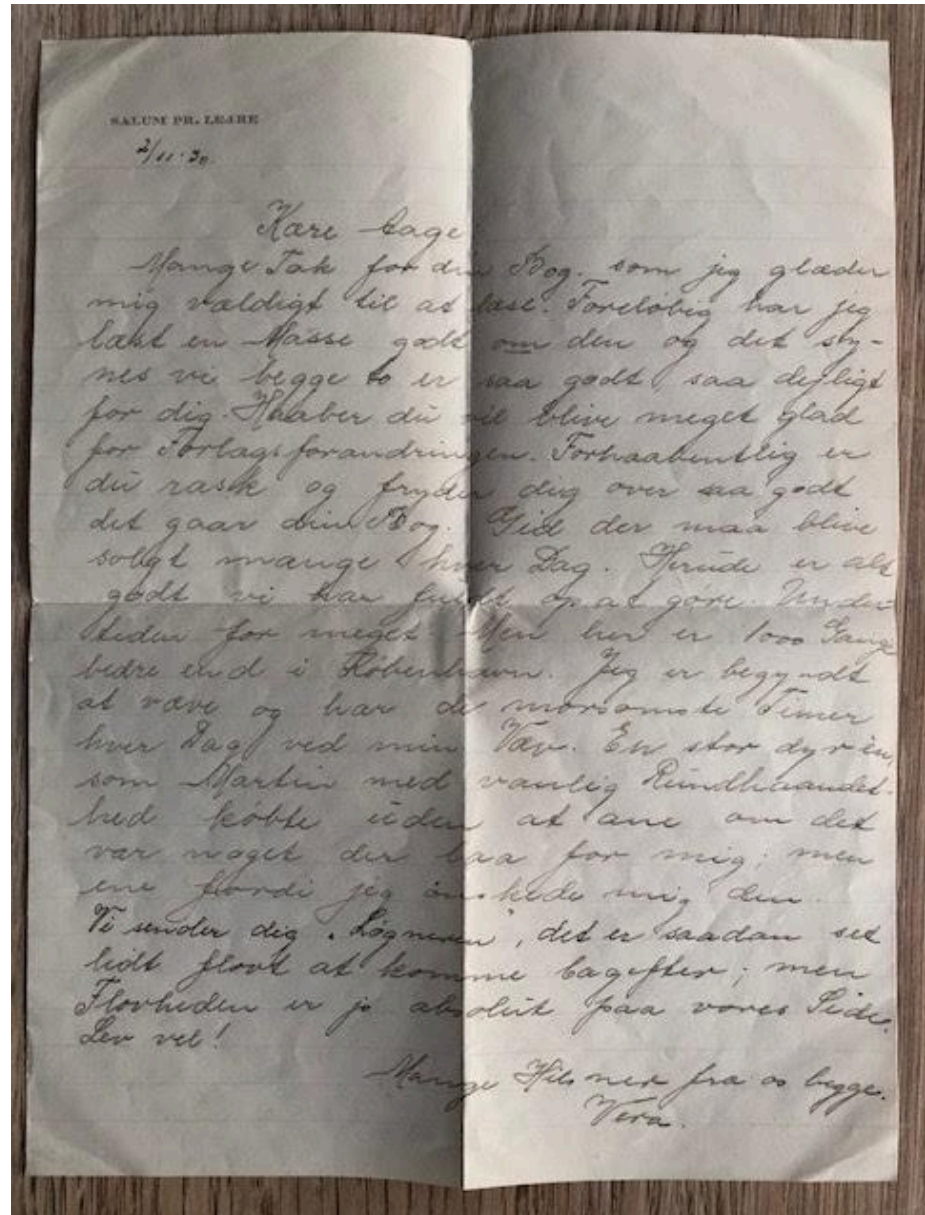 SALUM PR. LEJRE
2/11·30
Kære Aage
Mange Tak for din Bog. som jeg glæder
mig vældigt til at læse. Foreløbig har jeg
læst en Masse godt om den og det sy-
nes vi begge to er saa godt, saa dejligt
for dig. Haaber du vil blive meget glad
for Forlagsforandringen. Forhaabentlig er
du rask og fryder dig over saa godt
det gaar din Bog. Gid der maa blive
solgt mange hver Dag. Herude er alt
godt vi har fuldt op at göre. Under-
tiden for meget. Men her er 1000 Gange
bedre end i København. Jeg er begyndt
at væve og har de morsomste Timer
hver Dag ved min Væv. En stor dyr en,
som Martin med vanlig Rundhaandet-
hed købte uden at ane om det
var noget der laa for mig; men
ene fordi jeg ønskede mig den.
Vi sender dig "Løgneren", det er saadan set
lidt flovt at komme bagefter; men
Flovheden er jo absolut paa vores Side.
Lev vel!
Mange Hilsner fra os begge.
Vera.